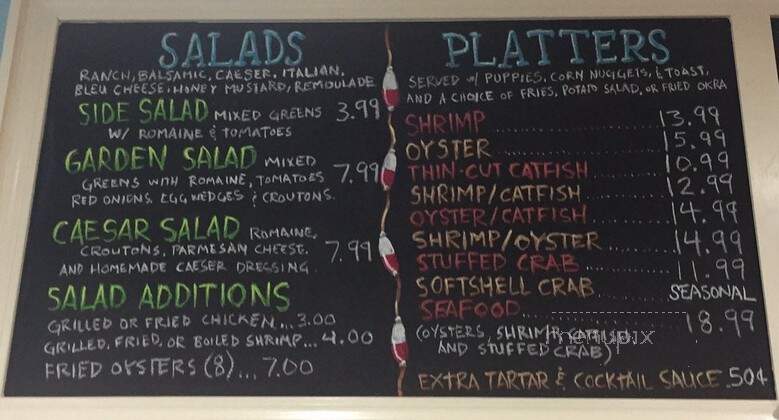 SALADS
RANCH, BALSAMIC, CAESER, ITALIAN,
BLEU CHEESE, HONEY MUSTARD, REMOULADE
SIDE SALAD MIXED GREENS 3.99
W/ ROMAINE & TOMATOES
GARDEN SALAD MIXED
GREENS WITH ROMAINE, TOMATOES 7.99
RED ONIONS, EGG WEDGES & CROUTONS.
CAESAR SALAD ROMAINE,
CROUTONS, PARMESAN CHEESE, 7.99
AND HOMEMADE CAESER DRESSING
SALAD ADDITIONS
GRILLED OR FRIED CHICKEN...3.00
GRILLED, FRIED, OR BOILED SHRIMP...4.00
FRIED OYSTERS (8)...7.00
PLATTERS
SERVED W/ PUPPIES, CORN NUGGETS, & TOAST,
AND A CHOICE OF FRIES, POTATO SALAD, OR FRIED OKRA
SHRIMP 13.99
OYSTER 15.99
THIN-CUT CATFISH 10.99
SHRIMP/CATFISH 12.99
OYSTER/CATFISH 14.99
SHRIMP/OYSTER 14.99
STUFFED CRAB 11.99
SOFTSHELL CRAB SEASONAL
SEAFOOD 18.99
(OYSTERS, SHRIMP, CATFISH,
AND STUFFED CRAB)
menupix
EXTRA TARTAR & COCKTAIL SAUCE .50¢